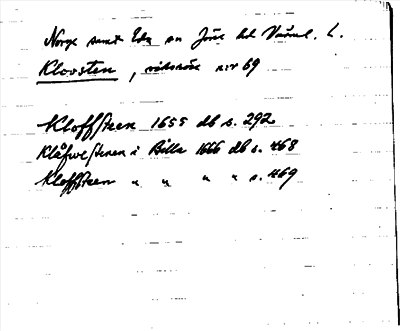 Norge samt Eda sn Jösse hd Värml. L.
Klovsten, riksröse nr 69
Kloffsteen 1655 db s. 292
Klåfwestenen i Billa 1666 db s. 468
Kloffsteen " " " " s. 469